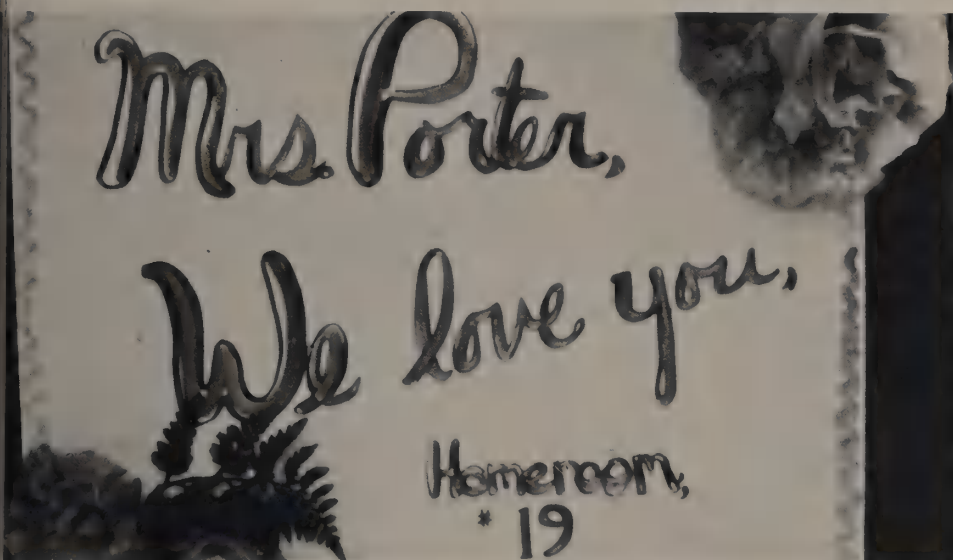 Mrs. Porter,
We love you,
Homeroom,
* 19